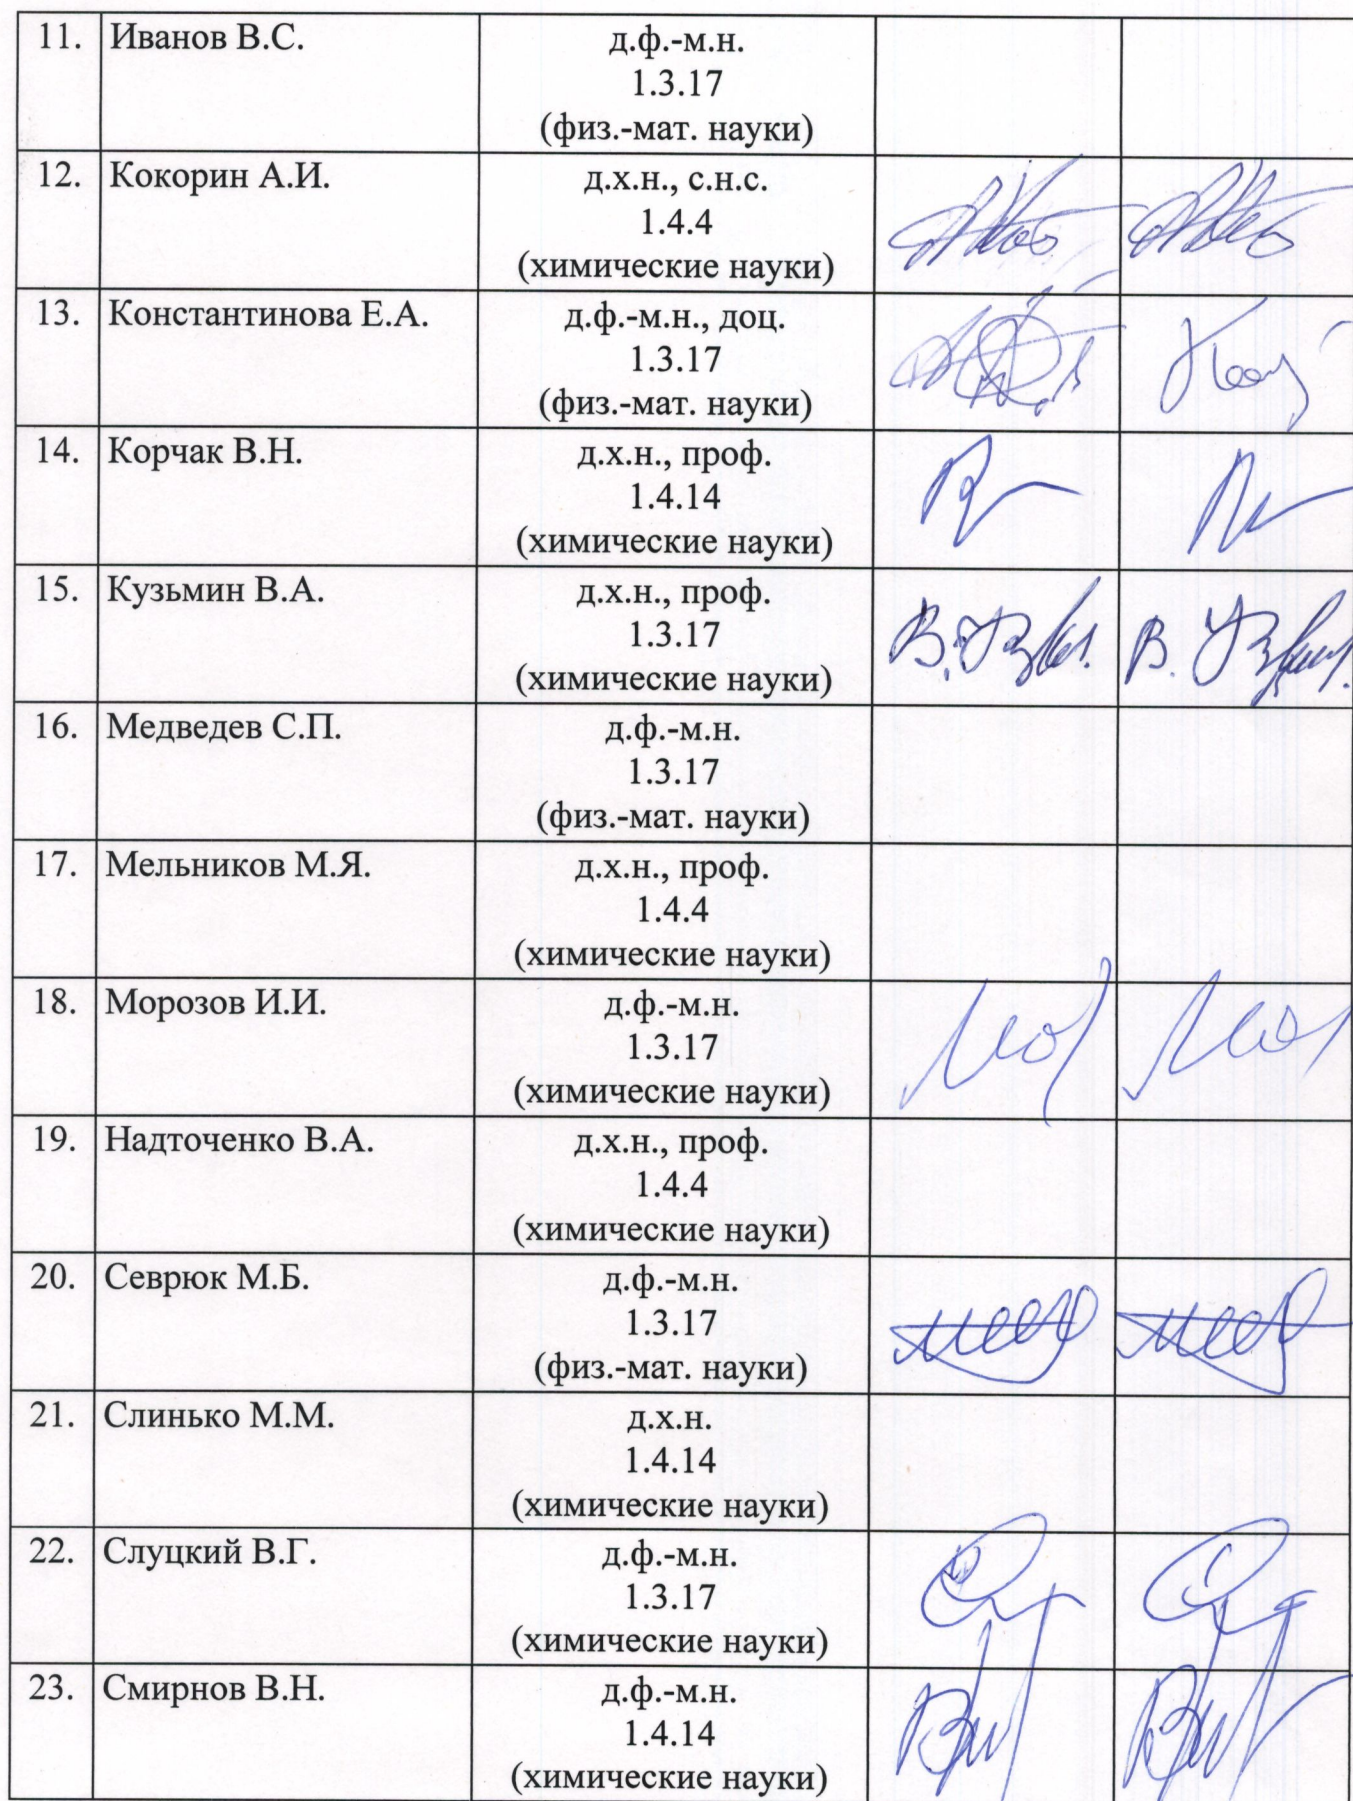 11. Иванов В.С. д.ф.-м.н.
1.3.17
(физ.-мат. науки)
12. Кокорин А.И. д.х.н., с.н.с.
1.4.4
(химические науки)
13. Константинова Е.А. д.ф.-м.н., доц.
1.3.17
(физ.-мат. науки)
14. Корчак В.Н. д.х.н., проф.
1.4.14
(химические науки)
15. Кузьмин В.А. д.х.н., проф.
1.3.17
(химические науки)
16. Медведев С.П. д.ф.-м.н.
1.3.17
(физ.-мат. науки)
17. Мельников М.Я. д.х.н., проф.
1.4.4
(химические науки)
18. Морозов И.И. д.ф.-м.н.
1.3.17
(химические науки)
19. Надточенко В.А. д.х.н., проф.
1.4.4
(химические науки)
20. Севрюк М.Б. д.ф.-м.н.
1.3.17
(физ.-мат. науки)
21. Слинько М.М. д.х.н.
1.4.14
(химические науки)
22. Слуцкий В.Г. д.ф.-м.н.
1.3.17
(химические науки)
23. Смирнов В.Н. д.ф.-м.н.
1.4.14
(химические науки)